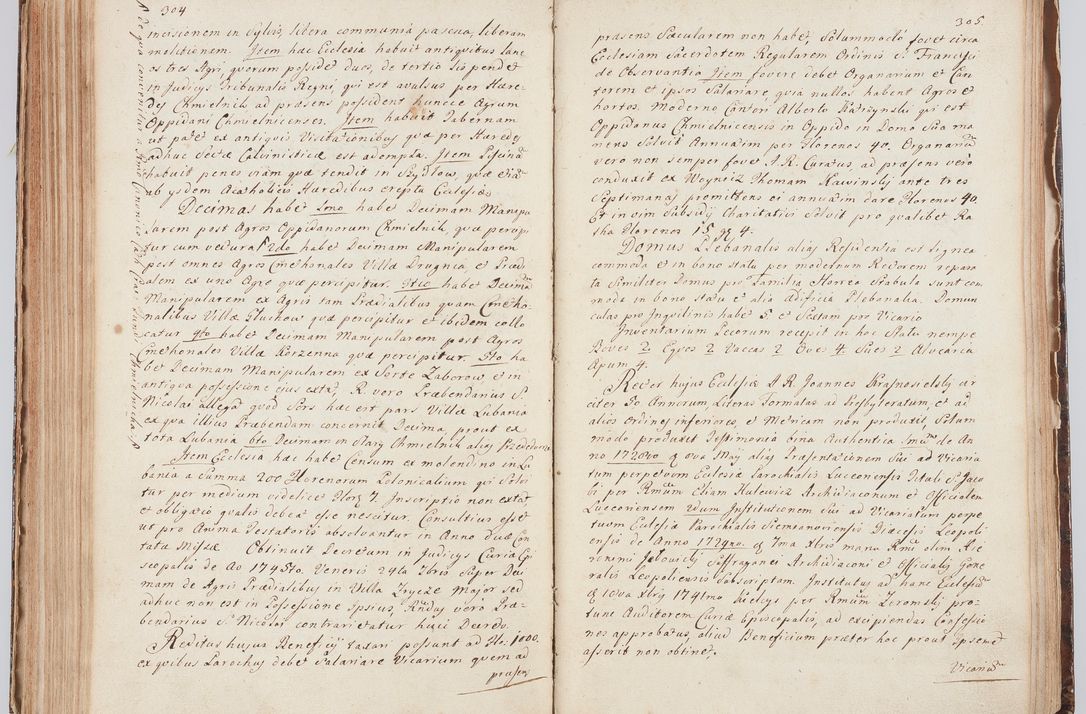 304
incisionem in Sylvis, libera communia pascua, liberam
molitionem. Item hac Ecclesia habuit antiquitus Lane
os tres Agri, quorum posside duos, de tertio Lis pendet
in Judicijs Tribunalis Regni, qui est avulsus per Hære-
des Chmielnik ad præsens possident huncce Agrum
Oppidani Chmielnicenses. Item habuit Tabernam
ut pate ex antiquis Visitationibus quæ per Hæredes
adhuc Sectæ Calvinisticæ est adempta. Item Piscinã
habuit penes viam quæ tendit in Szydłow, quæ etiã
ab ysdem Acatholicis Hæredibus erepta Ecclesiæ
Decimas habe 1mo habet Decimam Manipu
larem post Agros Oppidanorum Chmielnik quæ percipi
tur cum vectura 2do habe Decimam Manipularem
post omnes Agros Cmethonales Villæ Drugnia, et Prædi
alem ex uno Agro quæ percipitur. 3tio habe Decimã
Manipularem ex Agris tam Prædialibus quam Cmetho-
nalibus Villæ Gluchow quæ percipitur et ibidem collo
catur 4to habe Decimam Manipularem post Agros
Cmethonales Villæ Korzenna quæ percipitur. 5to ha
be Decimam Manipularem ex Sorte Zaborow et in
antiqua possessione ejus extat, R. vero Præbendarius S.
Nicolai allegat quod Sors hæc est pars Villæ Lubania
ex qua illius Præbendam concernit Decima, prout ex
tota Lubania 6to Decimam in Stary Chmielnik alias Przededworze
Item Ecclesia hæc habe Censum ex molendino in Lu
bania a Summa 200 Florenorum Polonicalium qui Solvi
tur per medium videlice Flor: 7 Inscriptio non extat
et obligatio qualis debeat esse nescitur. Consultius esset
ut pro Anima Testatoris absolvantur in Anno duæ Can
tatæ Missæ. Obtinuit Decretum in Judicijs Curiæ Epi
scopalis de Ao 1745to. Veneris 24ta 7bris Super Deci
mam de Agris Prædialibus in Villa Grycze Major sed
adhuc non est in Possessione Ipsius, Rndus vero Præ-
bendarius S. Nicolai contrarietatur huic Decreto.
Reditus hujus Beneficij taxari possunt ad Flo. 1000.
ex quibus Parochus debet Salariare Vicarium quem ad
præsens
305.
præsens Sæcularem non habe, Solummodo fovet circa
Ecclesiam Sacerdotem Regularem Ordinis S. Francisci
de Observantia Item fovere debet Organarium et Can
torem et ipsos Salariare, quia nullos habent Agros et
hortos. Moderno Cantori Alberto Karzynski qui est
Oppidanus Chmielnicensis in Oppido in Domo Sua ma
nens Solvit Annuatim per Florenos 40. Organariũ
vero non semper fove A.R. Curatus, ad præsens vero
conduxit ex Woyneicz Thomam Kawinski ante tres
Septimanas promittens ei annuatim dare Florenos 40.
Et in vim Subsidij Charitativi Solvit pro qualibet Ra
tha Florenos 15 gr 4.
Domus Plebanalis alias Residentia est lignea
commoda et in bono statu per modernum Rectorem repara
ta Similiter Domus pro Familia Horrea Stabula sunt com
moda in bono statu et alia Ædificia Plebanalia. Domun
culas pro Inquilinis habe 5 et Sextam pro Vicario
Inventarium Pecorum recepit in hoc Statu nempe
Boves 2. Equos 2 Vaccas 2 Oves 4. Sues 2 Alvearia
Apum 4.
Rector hujus Ecclesiæ A R. Joannes Krasnosielski cir
citer 50 Annorum, Literas Formatas ad Presbyteratum, et ad
alios Ordines inferiores, et Metricam non produxit, Solum
modo produxit Testimonia bina Authentica 1mũ de An
no 1720mo 9 ova Maij alias Præsentationem Sui ad Vicaria
tum perpetuum Ecclesiæ Parochialis Luceoriensis Tituli S. Jaco
bi per Rmum Eliam Hulewicz Archidiaconum et Officialem
Luceoriensem 2dum Institutionem Sui ad Vicariatum perpe
tuum Ecclesiæ Parochialis Siemianoviensis Diæcesis Leopoli
ensis de Anno 1729no. 9 Ima Xbris manu Rmi olim Hie
ronimi Jełowicki Suffraganei Archidiaconi et Officialis Gene
ralis Leopoliensis Subscriptam. Institutus ad hanc Ecclesiã
9 10va Xbris 1741mo Kielcijs per Rmũm Zeromski pro-
tunc Auditorem Curiæ Episcopalis, ad excipiendas Confessio
nes approbatus, aliud Beneficium præter hoc prout Ipsemet
asserit non obtinet.
Vicariũ